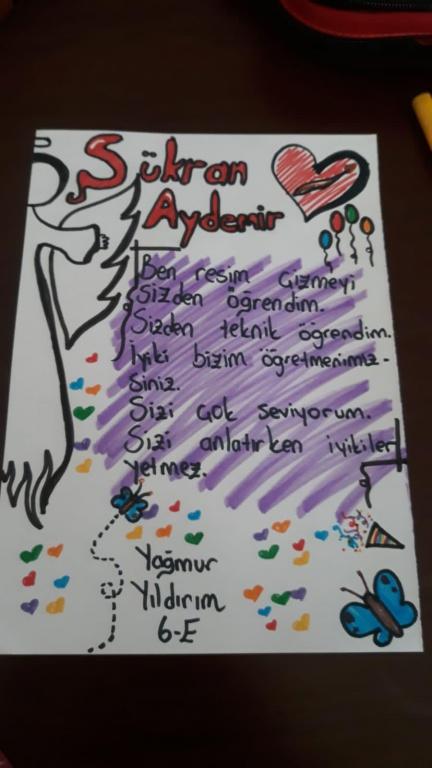 Şükran
Aydemir
Ben resim çizmeyi
sizden öğrendim.
Sizden teknik öğrendim.
İyiki bizim öğretmenimiz-
siniz.
Sizi çok seviyorum.
Sizi anlatırken iyikiler
yetmez.
Yağmur
Yıldırım
6-E